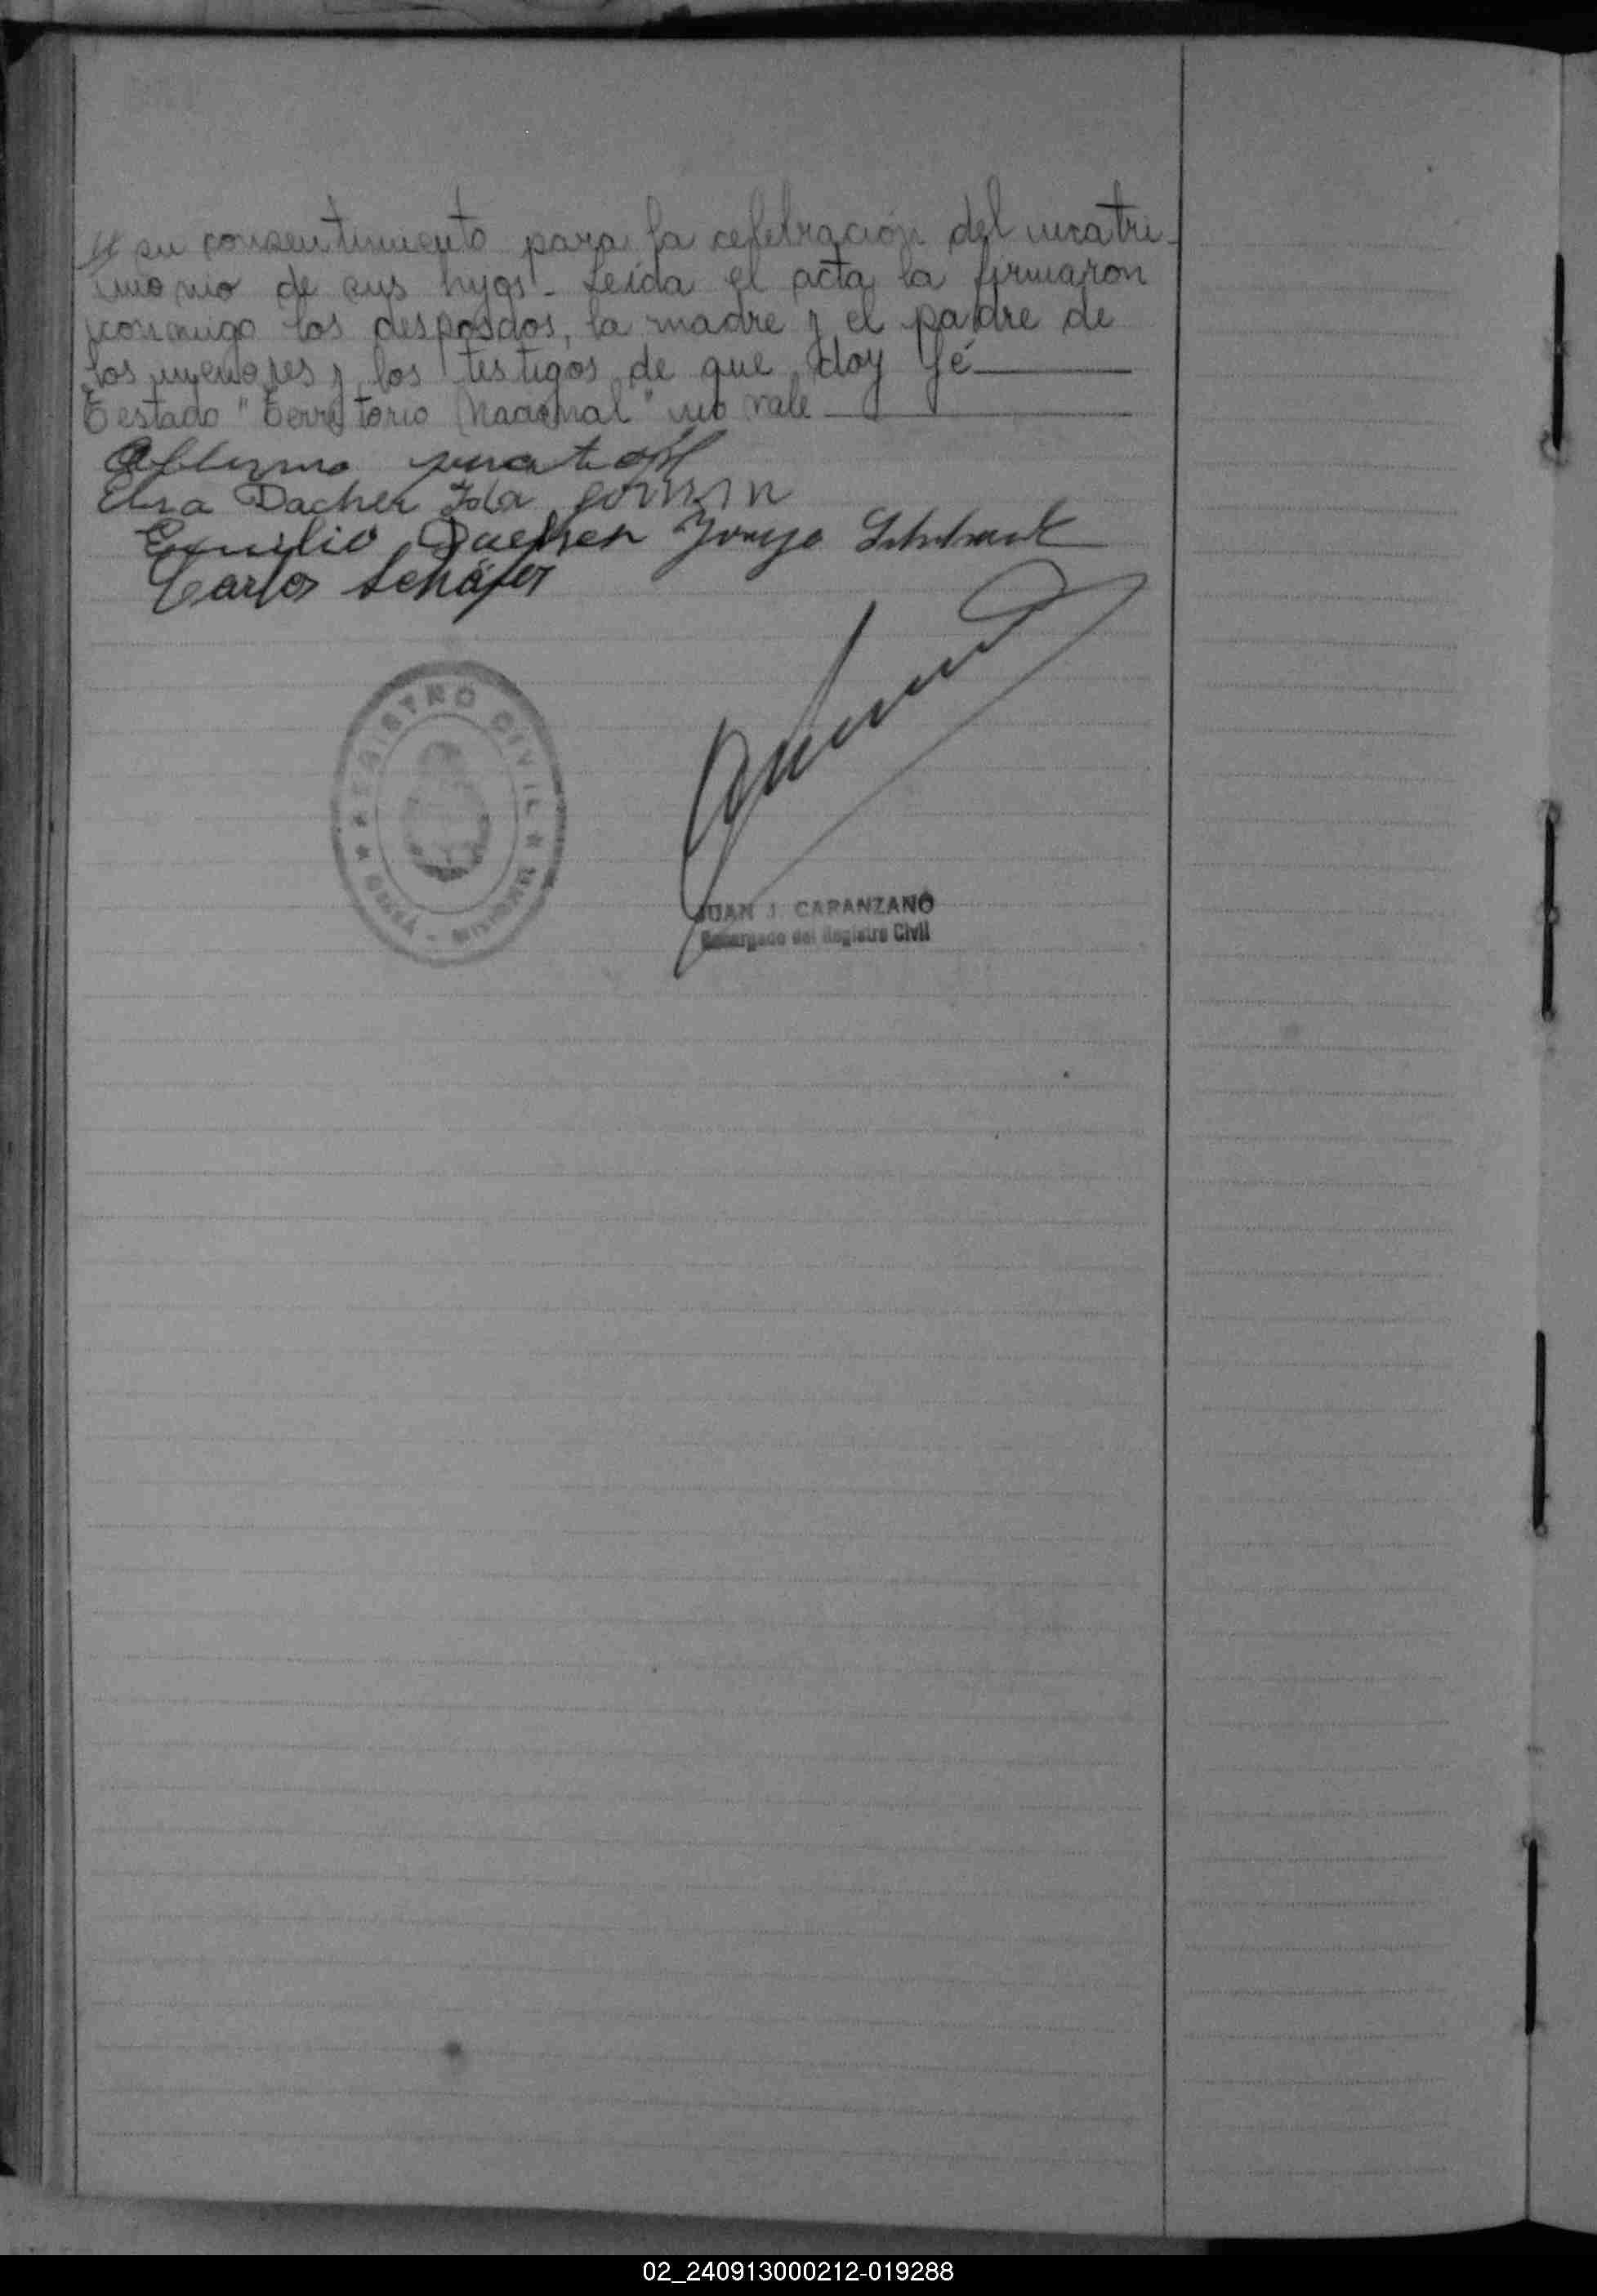 su consentimiento para la celebración del matri-
monio de sus hijos - Leída el acta la firmaron
conmigo los desposdos, la madre y el padre de
los menores y los testigos de que doy fé
Testado "Territorio Nacional" no vale
Elsa Dacher Ida
Emilio Dacher Jorge
Carlos Schäfer
REGISTRO CIVIL
JUAN J. CARANZANO
Encargado del Registro Civil
02_240913000212-019288